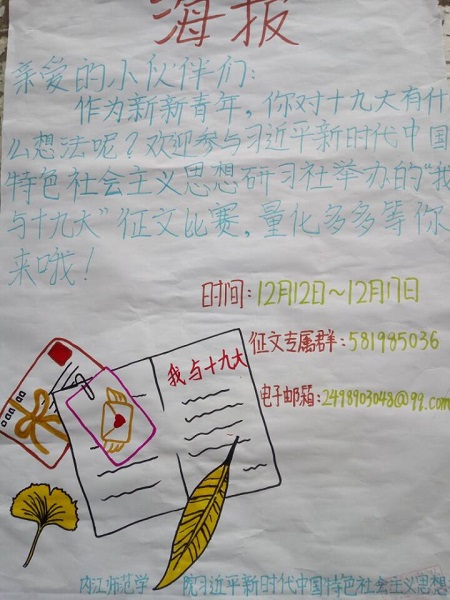 海报
亲爱的小伙伴们:
作为新新青年,你对十九大有什
么想法呢?欢迎参与习近平新时代中国
特色社会主义思想研习社举办的“我
与十九大”征文比赛,量化多多等你
来哦!
时间:12月12日~12月17日
征文专属群:581985036
电子邮箱:2498903048@qq.com
我与十九大
内江师范学 院习近平新时代中国特色社会主义思想